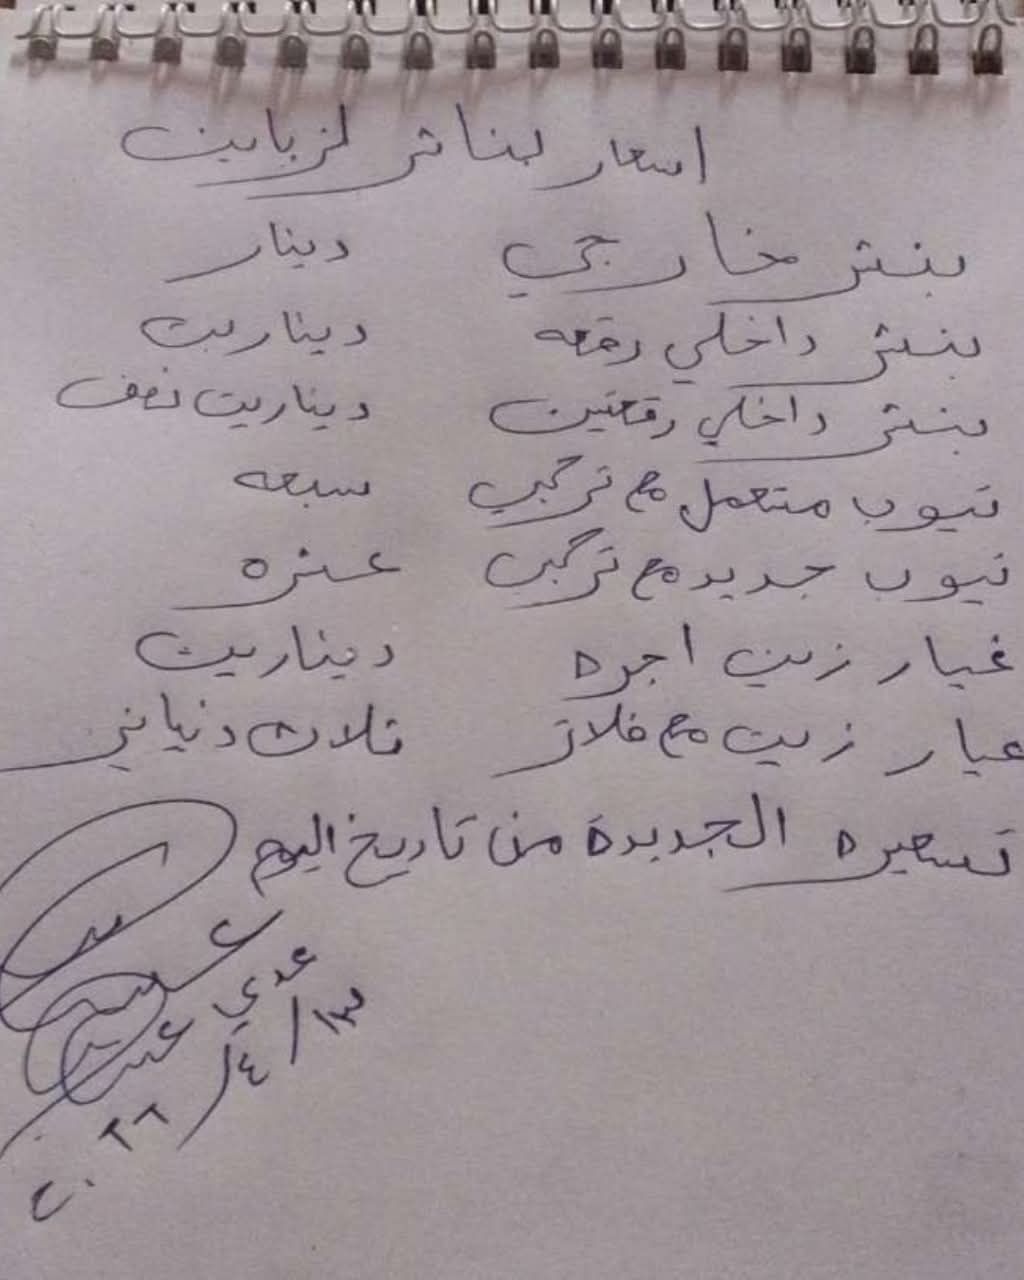 اسعار بناشر لزباين
بنشر خارجي دينار
بنشر داخلي رقعه دينارين
بنشر داخلي رقعتين دينارين نصف
تيوب متعمل مع تركيب سبعه
تيوب جديد مع تركيب عشره
غيار زيت اجره دينارين
غيار زيت مع فلاتر ثلاث دنياني
تسعيره الجديدة من تاريخ اليوم
عدي
١٣/٤/٢٠٢٦